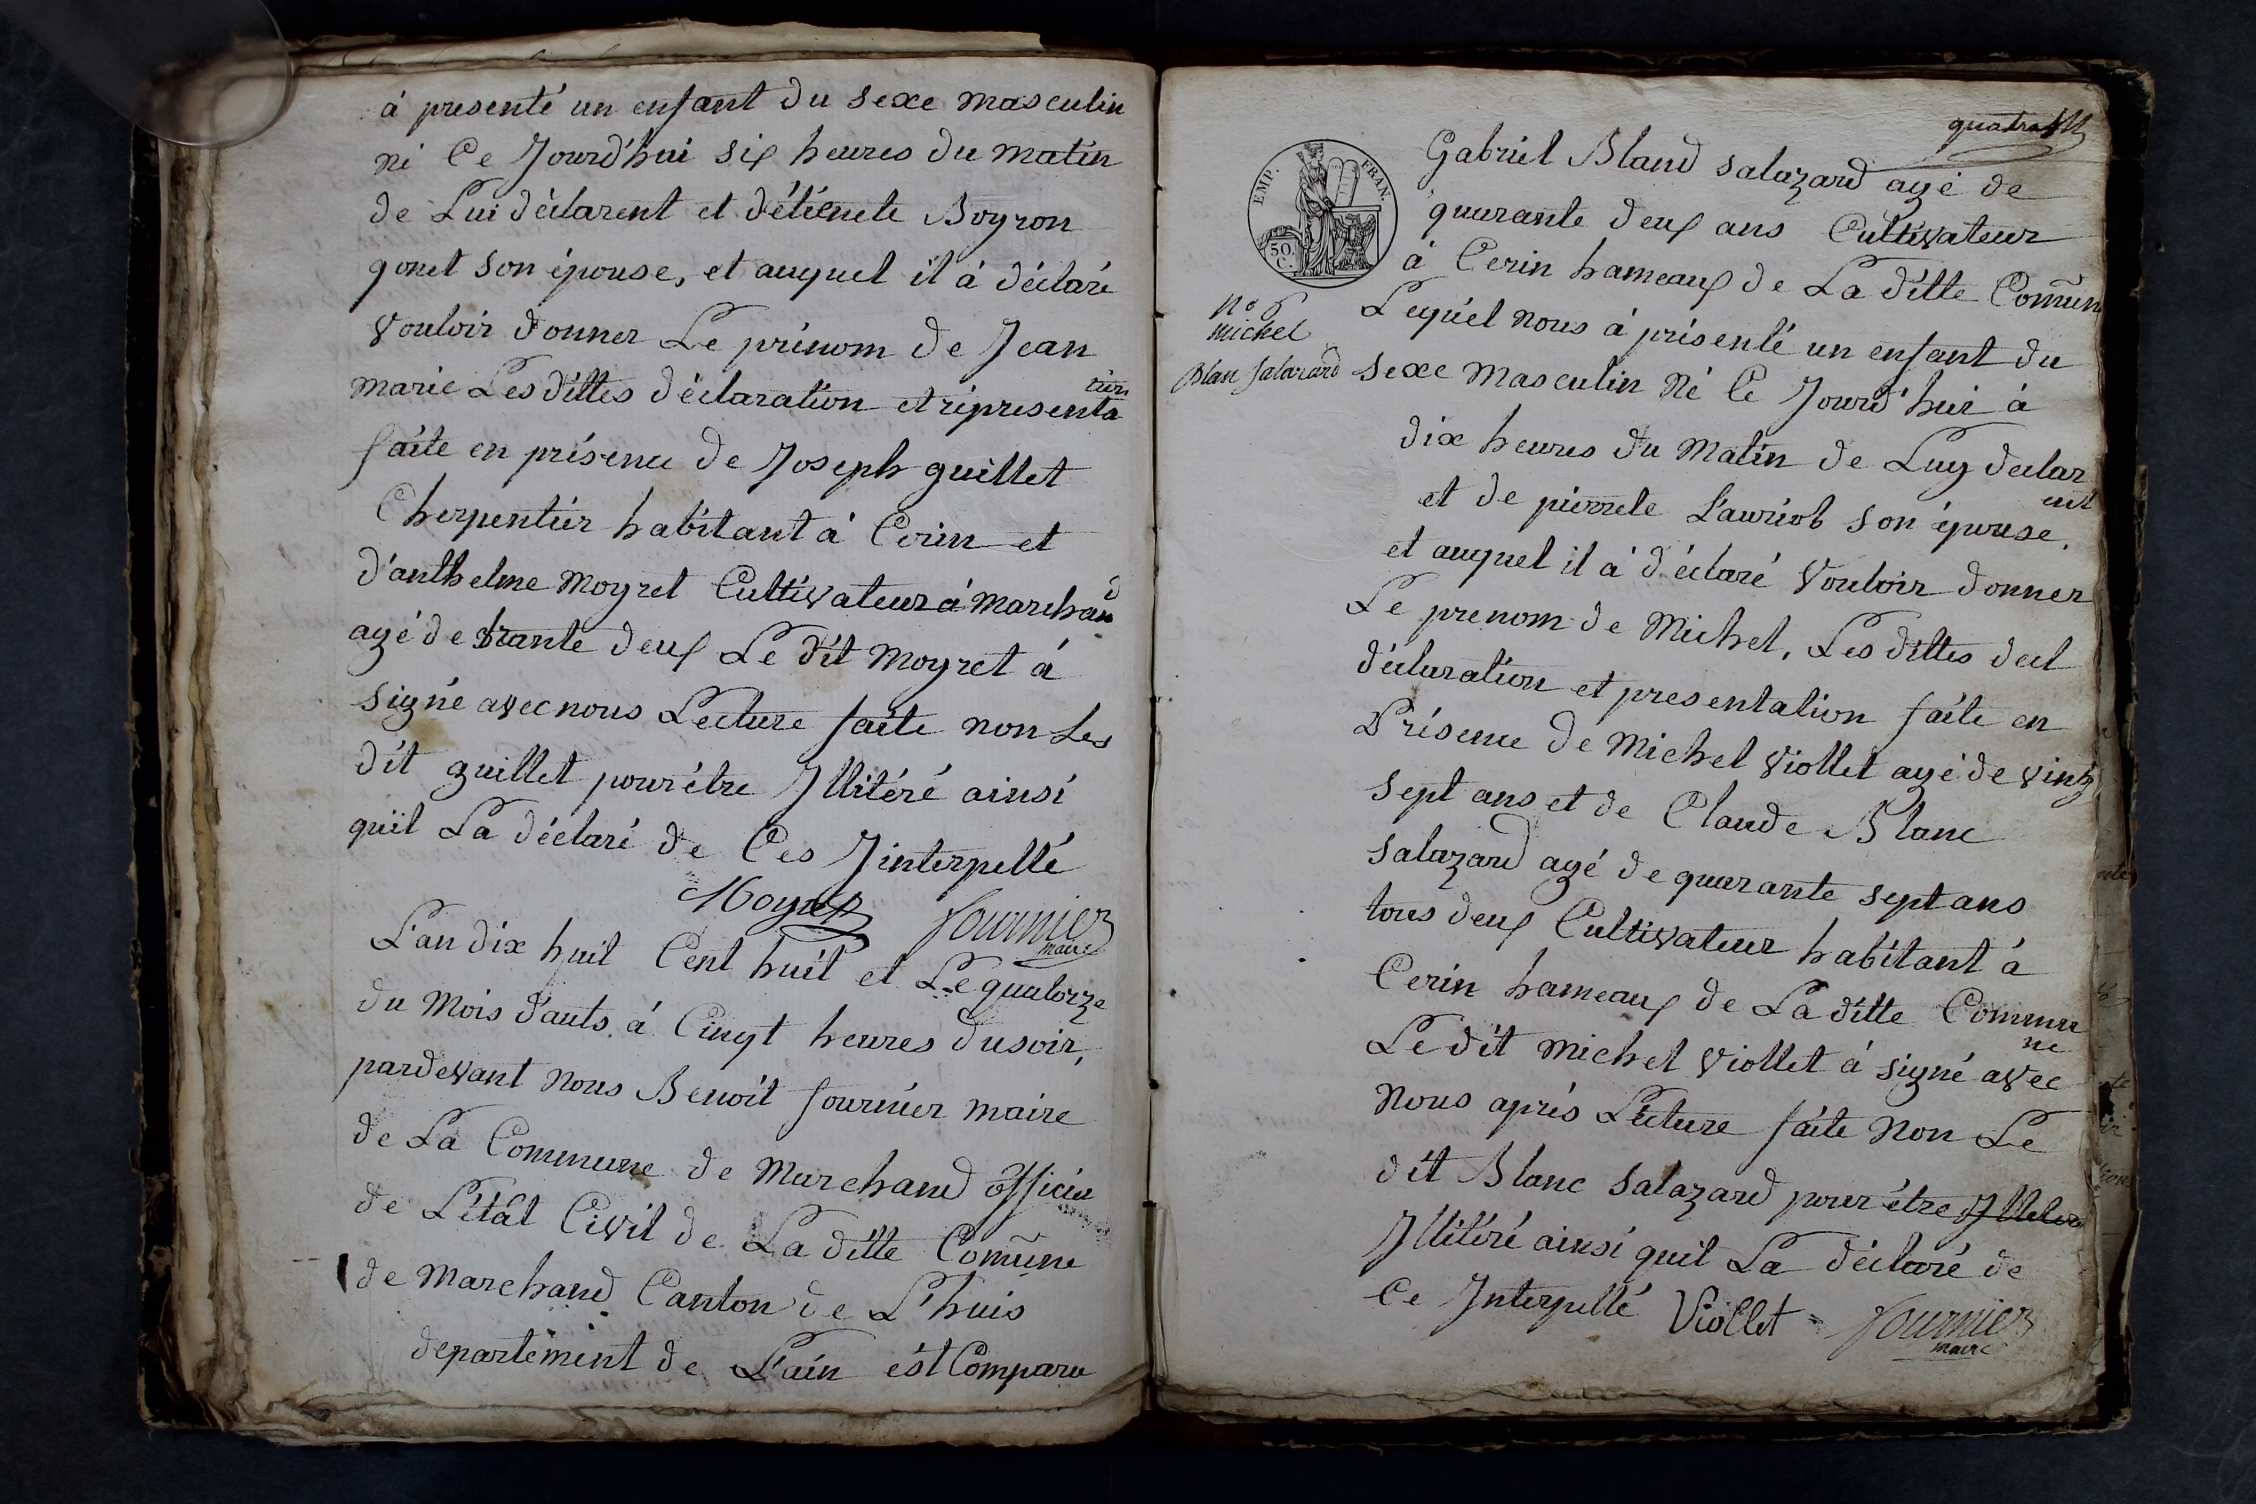 à presenté un enfant du sexe masculin
né Ce Jourd'hui six heures du matin
de Lui déclarent et d'étienete Boyron
gonet son épouse, et auquel il à déclaré
vouloir donner Le prénom de Jean
marie Les dittes déclaration et réprésenta
tion
faite en présence de Joseph guillet
Cherpentier habitant à Cerin et
d'anthelme moyret Cultivateur à marchan
d
agé de trante deux Le dit moyret à
signé avec nous Lecture faite non Les
dit guillet pour être Illitéré ainsi
quil La déclaré de Ces Jinterpellé
Moyret Fournier
maire
L'an dix huit Cent huit et Le quatorze
du Mois d'auts à Cinqt heures du soir,
pardevant nous Benoit fournier maire
de La Commune de Marchand officier
de L'état Civil de La ditte Comune
de Marchand Canton de L'huis
departement de L'ain ést Comparu
EMP. FRAN.
50.
C.
n° 6
michel
Blan Salazard
Gabriel Bland salazard agé de
quarante deux ans Cultivateur
à Cerin hameaux de La ditte Comun
Lequel nous à présenté un enfant du
sexe masculin Né Ce Jourd'hui à
dix heures du Matin de Luy declar
ent
et de pierrete Lauriob son épouse.
et auquel il à déclaré vouloir donner
Le prenom de Michel, Les dittes decl
déclaration et presentation faite en
Présence de Michel Viollet agé de vingt
sept ans et de Claude Blanc
salazard agé de quarante sept ans
tous deux Cultivateur habitant à
Cerin hameaux de La ditte Commu
ne
Le dit Michel Viollet à signé avec
Nous aprés Lecture faite Non Le
dit Blanc Salazard pour être
Illitéré ainsi quil La déclaré de
Ce Interpellé Viollet Fournier
maire